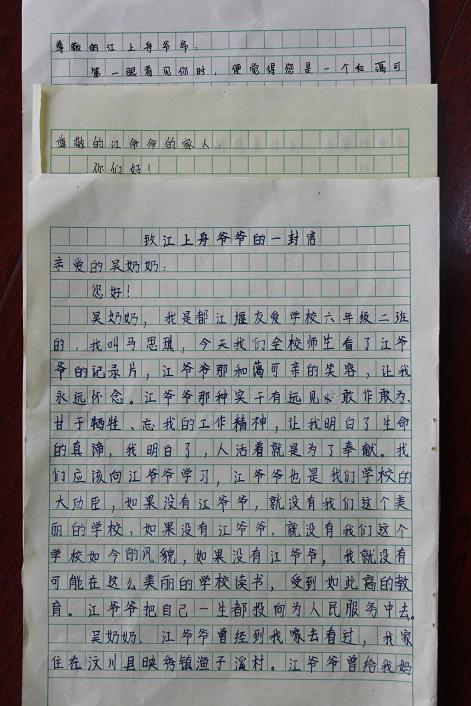 尊敬的江上舟爷爷：
第一眼看见你时，便觉得您是一个和蔼可
尊敬的江爷爷的家人：
你们好！
致江上舟爷爷的一封信
亲爱的吴奶奶：
您好！
吴奶奶，我是都江堰友爱学校六年级二班
的，我叫马思琪，今天我们全校师生看了江爷
爷的记录片，江爷爷那和蔼可亲的笑容，让我
永远怀念。江爷爷那种实干有远见、敢作敢为、
甘于牺牲、忘我的工作精神，让我明白了生命
的真谛，我明白了，人活着就是为了奉献。我
们应该向江爷爷学习，江爷爷也是我们学校的
大功臣，如果没有江爷爷，就没有我们这个美
丽的学校，如果没有江爷爷、就没有我们这个
学校如今的风貌，如果没有江爷爷，我就没有
可能在这么美丽的学校读书，受到如此高的教
育。江爷爷把自己一生都投向为人民服务中去。
吴奶奶、江爷爷曾经到我家去看过，我家
住在汶川县映秀镇渔子溪村。江爷爷曾给我妈